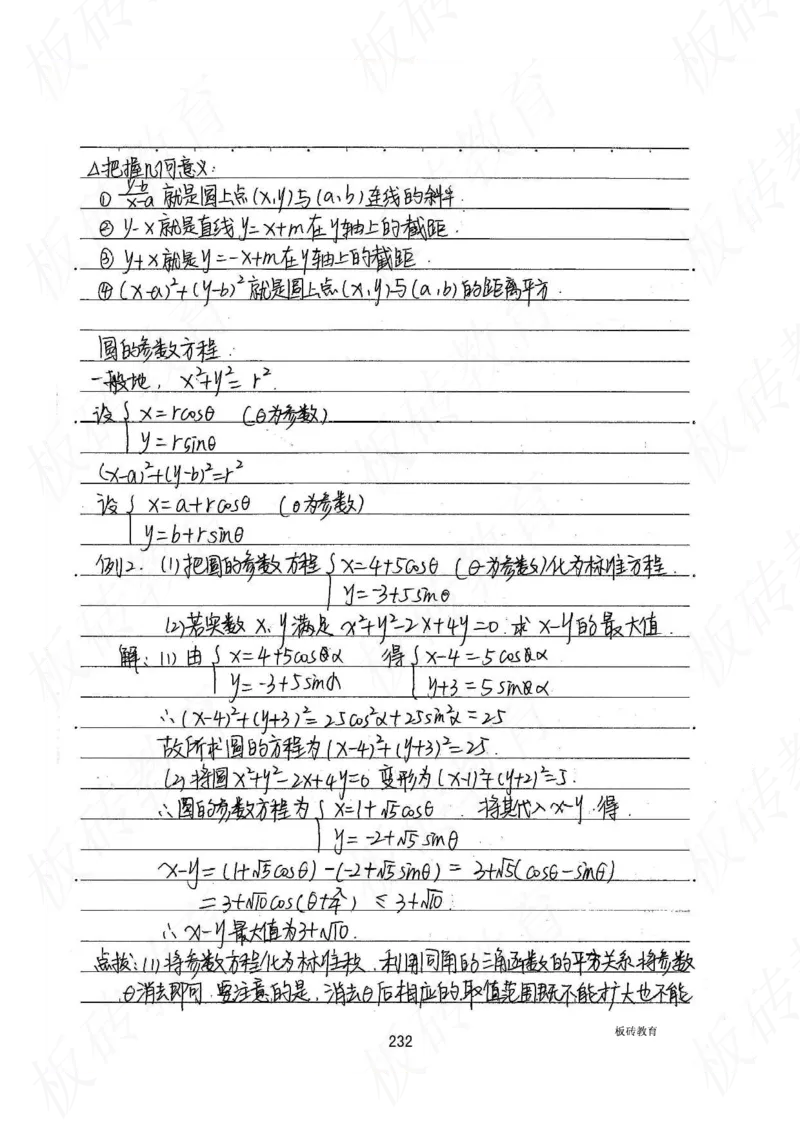 △把握几何意义:
① (y-b)/(x-a) 就是圆上点(x,y)与(a,b)连线的斜率.
② y-x就是直线y=x+m在y轴上的截距.
③ y+x就是y=-x+m在y轴上的截距.
④ (x-a)²+(y-b)²就是圆上点(x,y)与(a,b)的距离平方.
圆的参数方程:
一般地, x²+y²=r².
设{ x=rcosθ (θ为参数)
y=rsinθ
(x-a)²+(y-b)²=r²
设{ x=a+rcosθ (θ为参数)
y=b+rsinθ
例2. (1)把圆的参数方程{ x=4+5cosθ (θ为参数)化为标准方程.
y=-3+5sinθ
(2)若实数x、y满足x²+y²-2x+4y=0.求x-y的最大值.
解:(1)由{ x=4+5cosα 得{ x-4=5cosα
y=-3+5sinα y+3=5sinα
∴(x-4)²+(y+3)²=25cos²α+25sin²α=25
故所求圆的方程为(x-4)²+(y+3)²=25.
(2)将圆x²+y²-2x+4y=0 变形为(x-1)²+(y+2)²=5.
∴圆的参数方程为{ x=1+√5cosθ . 将其代入x-y.得.
y=-2+√5sinθ
x-y=(1+√5cosθ)-(-2+√5sinθ)=3+√5(cosθ-sinθ)
=3+√10cos(θ+π/4)≤3+√10.
∴x-y最大值为3+√10.
点拨:(1)将参数方程化为标准秋,利用同角的三角函数的平方关系将参数
θ消去即可.要注意的是,消去θ后相应的取值范围既不能扩大也不能
板砖教育
232